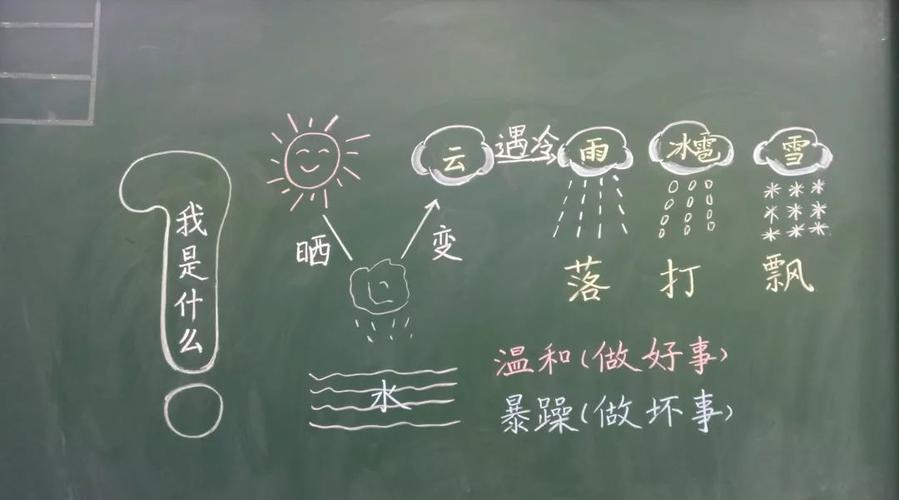 我是什么
云 遇冷 雨 冰雹 雪
晒 变
落 打 飘
水
温和(做好事)
暴躁(做坏事)